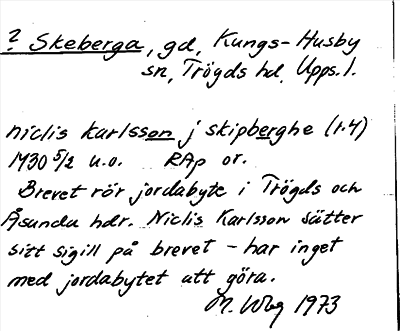 ? Skeberga, gd, Kungs-Husby
sn, Trögds hd, Upps. l.
niclis karlsson j skipberghe (r.4)
1430 5/2 u.o. RAp or.
Brevet rör jordabyte i Trögds och
Åsunda hdr. Niclis Karlsson sätter
sitt sigill på brevet - har inget
med jordabytet att göra.
M. Wbg 1973